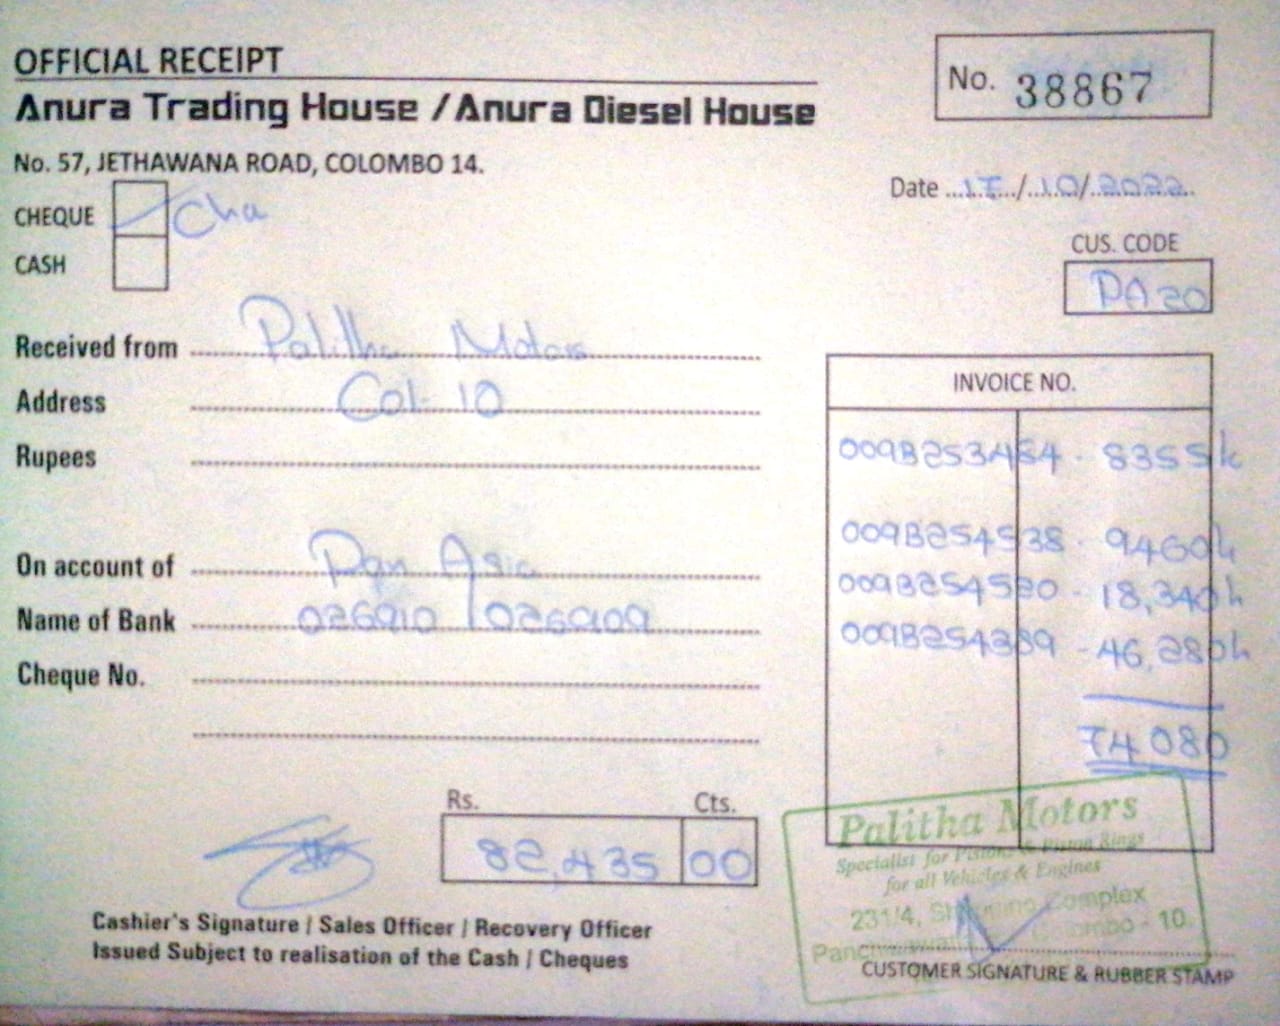 OFFICIAL RECEIPT
No. 38867
Anura Trading House / Anura Diesel House
No. 57, JETHAWANA ROAD, COLOMBO 14.
Date 17/10/2022
CHEQUE Cha
CASH
CUS. CODE
PA 20
Received from Palitha Motors
Address Col- 10
Rupees
INVOICE NO.
009B253454 - 8355
009B254538 - 9460
009B254520 - 18,340
009B254389 - 46,280
74080
On account of Pan Asia
Name of Bank 026910 / 026909
Cheque No.
Rs. Cts.
82,435 00
Cashier's Signature / Sales Officer / Recovery Officer
Issued Subject to realisation of the Cash / Cheques
Palitha Motors
Specialist for Pistons & Piston Rings
for all Vehicles & Engines
231/4, Shopping Complex
Colombo - 10.
CUSTOMER SIGNATURE & RUBBER STAMP